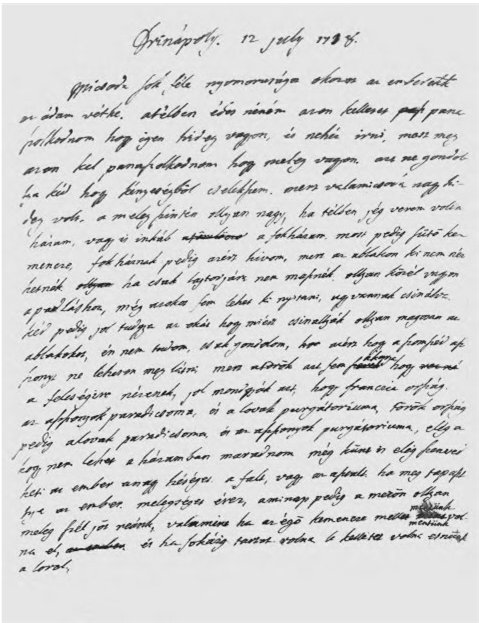 Drinápoly. 12 july 1718.
micsoda sok féle nyomorusága okozot az embereknek
az ádám vétke. a télben édes néném azon kelletet pana
szolkodnom hogy igen hideg vagyon, és nehéz irni, most meg
azon kel panaszolkodnom hogy meleg vagyon. azt ne gondol
lya kéd hogy kényeségböl cselekszem. mert valamicsoda nagy hi-
deg volt. a meleg szintén ollyan nagy, ha télben jég verem volt a
házam, vagy is inkáb a fokházam. most pedig sütö ke-
mencze, fokháznak pedig azért hivom, mert az ablakom ki nem néz
hetnék ha csak lajtorjára nem másznék. ollyan közel vagyon
a padláshoz, még azokat sem lehet ki nyitani, ugy vannak csinálva.
kéd pedig jol tudgya az okát hogy miért csinállyák ollyan magosan az
ablakokot, én nem tudom, csak gondolom, hogy azért hogy a szomszéd asz
szonyt ne lehessen meg látni mert a török azt sem akarja hogy
a feleségire nézzenek, jol mondgyák azt, hogy franczia ország.
az aszszonyok paradicsoma, és a lovak purgátoriuma, török ország
pedig a lovak paradicsoma, és az aszszonyok purgátoriuma, elég a
hogy nem lehet a házamban maradnom még künt is elég szenved
heti az ember a nagy héséget. a falt, vagy az asztalt ha meg tapasz
tya az ember. melegséget érez, a minap pedig a mezön ollyan
meleg szél jöt reánk, valamint ha az égö kemencze mellet mentünk vol-
na el, és ha sokáig tartot volna le kelletet volna esnünk
a lorol,